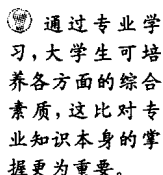 通过专业学
习，大学生可培
养各方面的综合
素质，这比对专
业知识本身的掌
握更为重要。